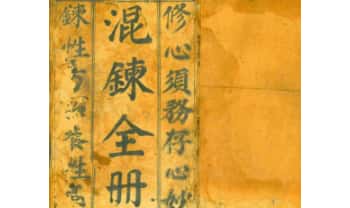 修心須務存心妙
混鍊全册
鍊性 養性